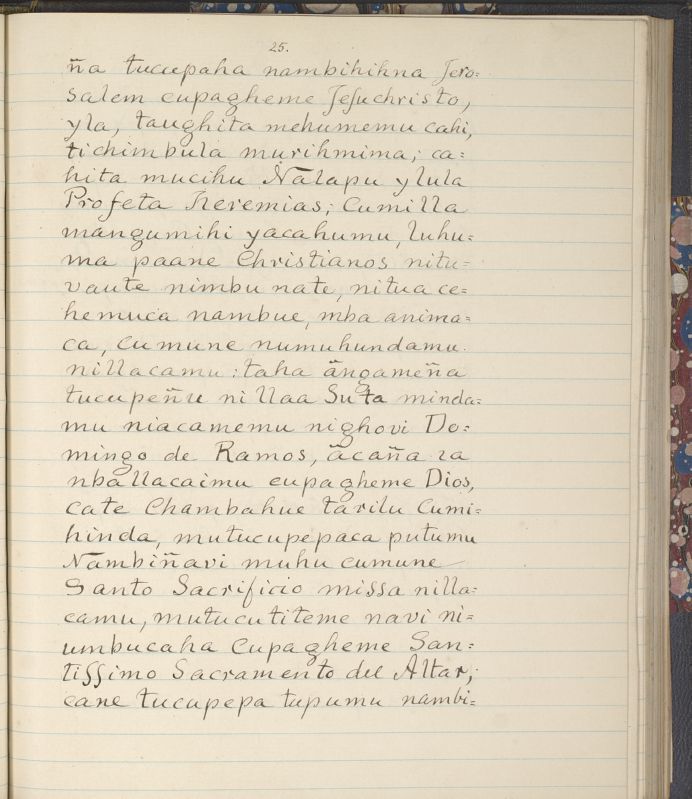 25.
ña tucupaha nambihihna Jero=
salem cupagheme Jesuchristo,
yla, taughita mehumemu cahi,
tichimbula murihmima; ca=
hita mucihu Nãlapu ylula
Profeta Jeremias; Cumilla
mangumihi yacahumu, luhu=
ma paane Christianos nitu=
vaute nimbu nate, nitua ce=
hemuca nambue, mba anima=
ca, cumune numuhundamu.
nillacamu: taha ãngameña
tucupeñu nillaa Suta minda=
mu niacamemu nighovi Do=
mingo de Ramos, ãcaña ra
nballacaimu cupagheme Dios,
cate Chambahue tarilu Cumi=
hinda, mutucupepaca putumu
Nambiñavi muhu cumune
Santo Sacrificio missa nilla=
camu, mutucutiteme navi ni=
umbucaha Cupagheme San=
tissimo Sacramento del Altar;
cane tucupepa tupumu nambi=